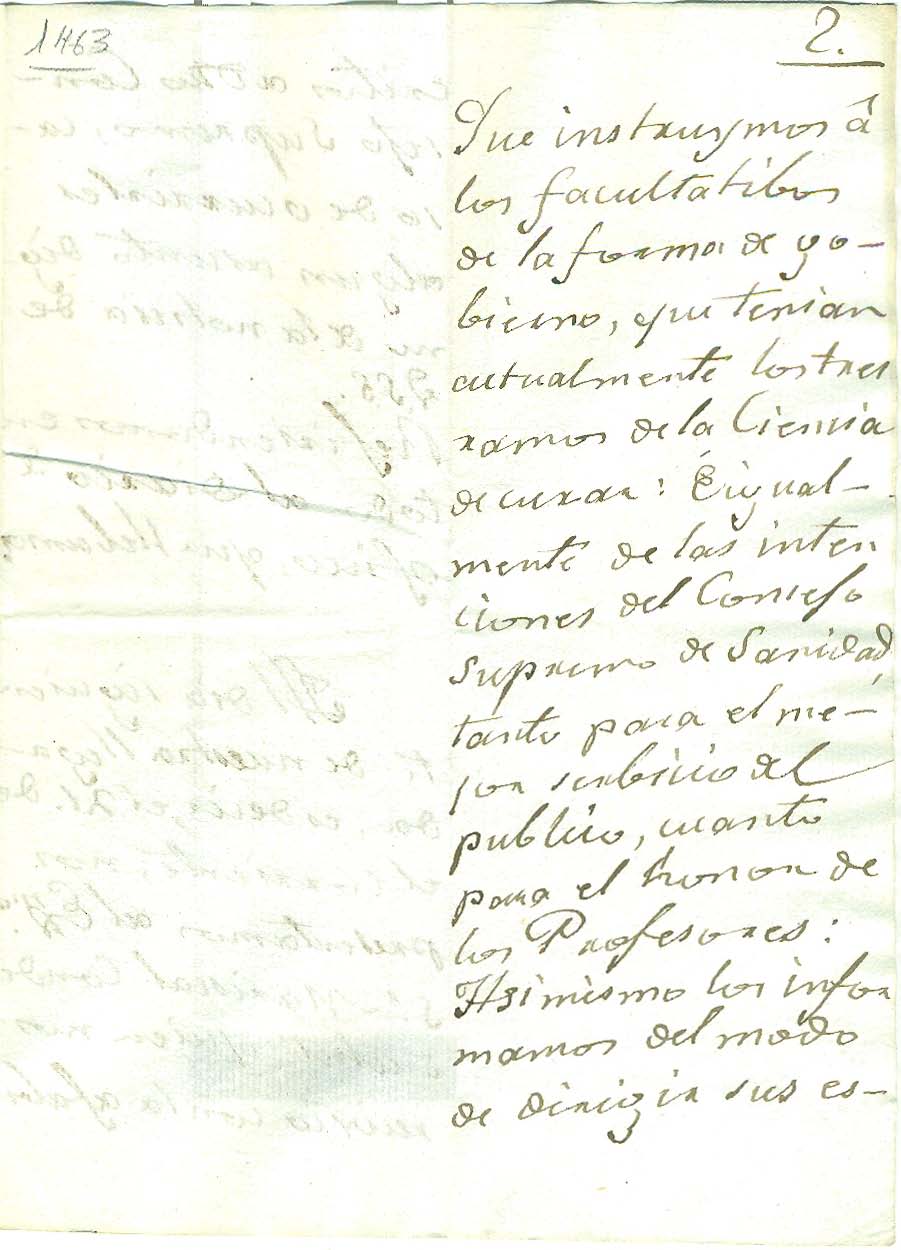 1463
2.
Que instruymos â
los facultatibos
de la forma de go-
bierno, que tenian
actualmente los tres
ramos de la Ciencia
de curar: É igual-
mente de las inten
ciones del Consejo
Supremo de Sanidad
tanto para el me-
jor serbicio del
publico, cuanto
para el honor de
los Profesores:
Asimismo los infor
mamos del modo
de dirigir sus es-